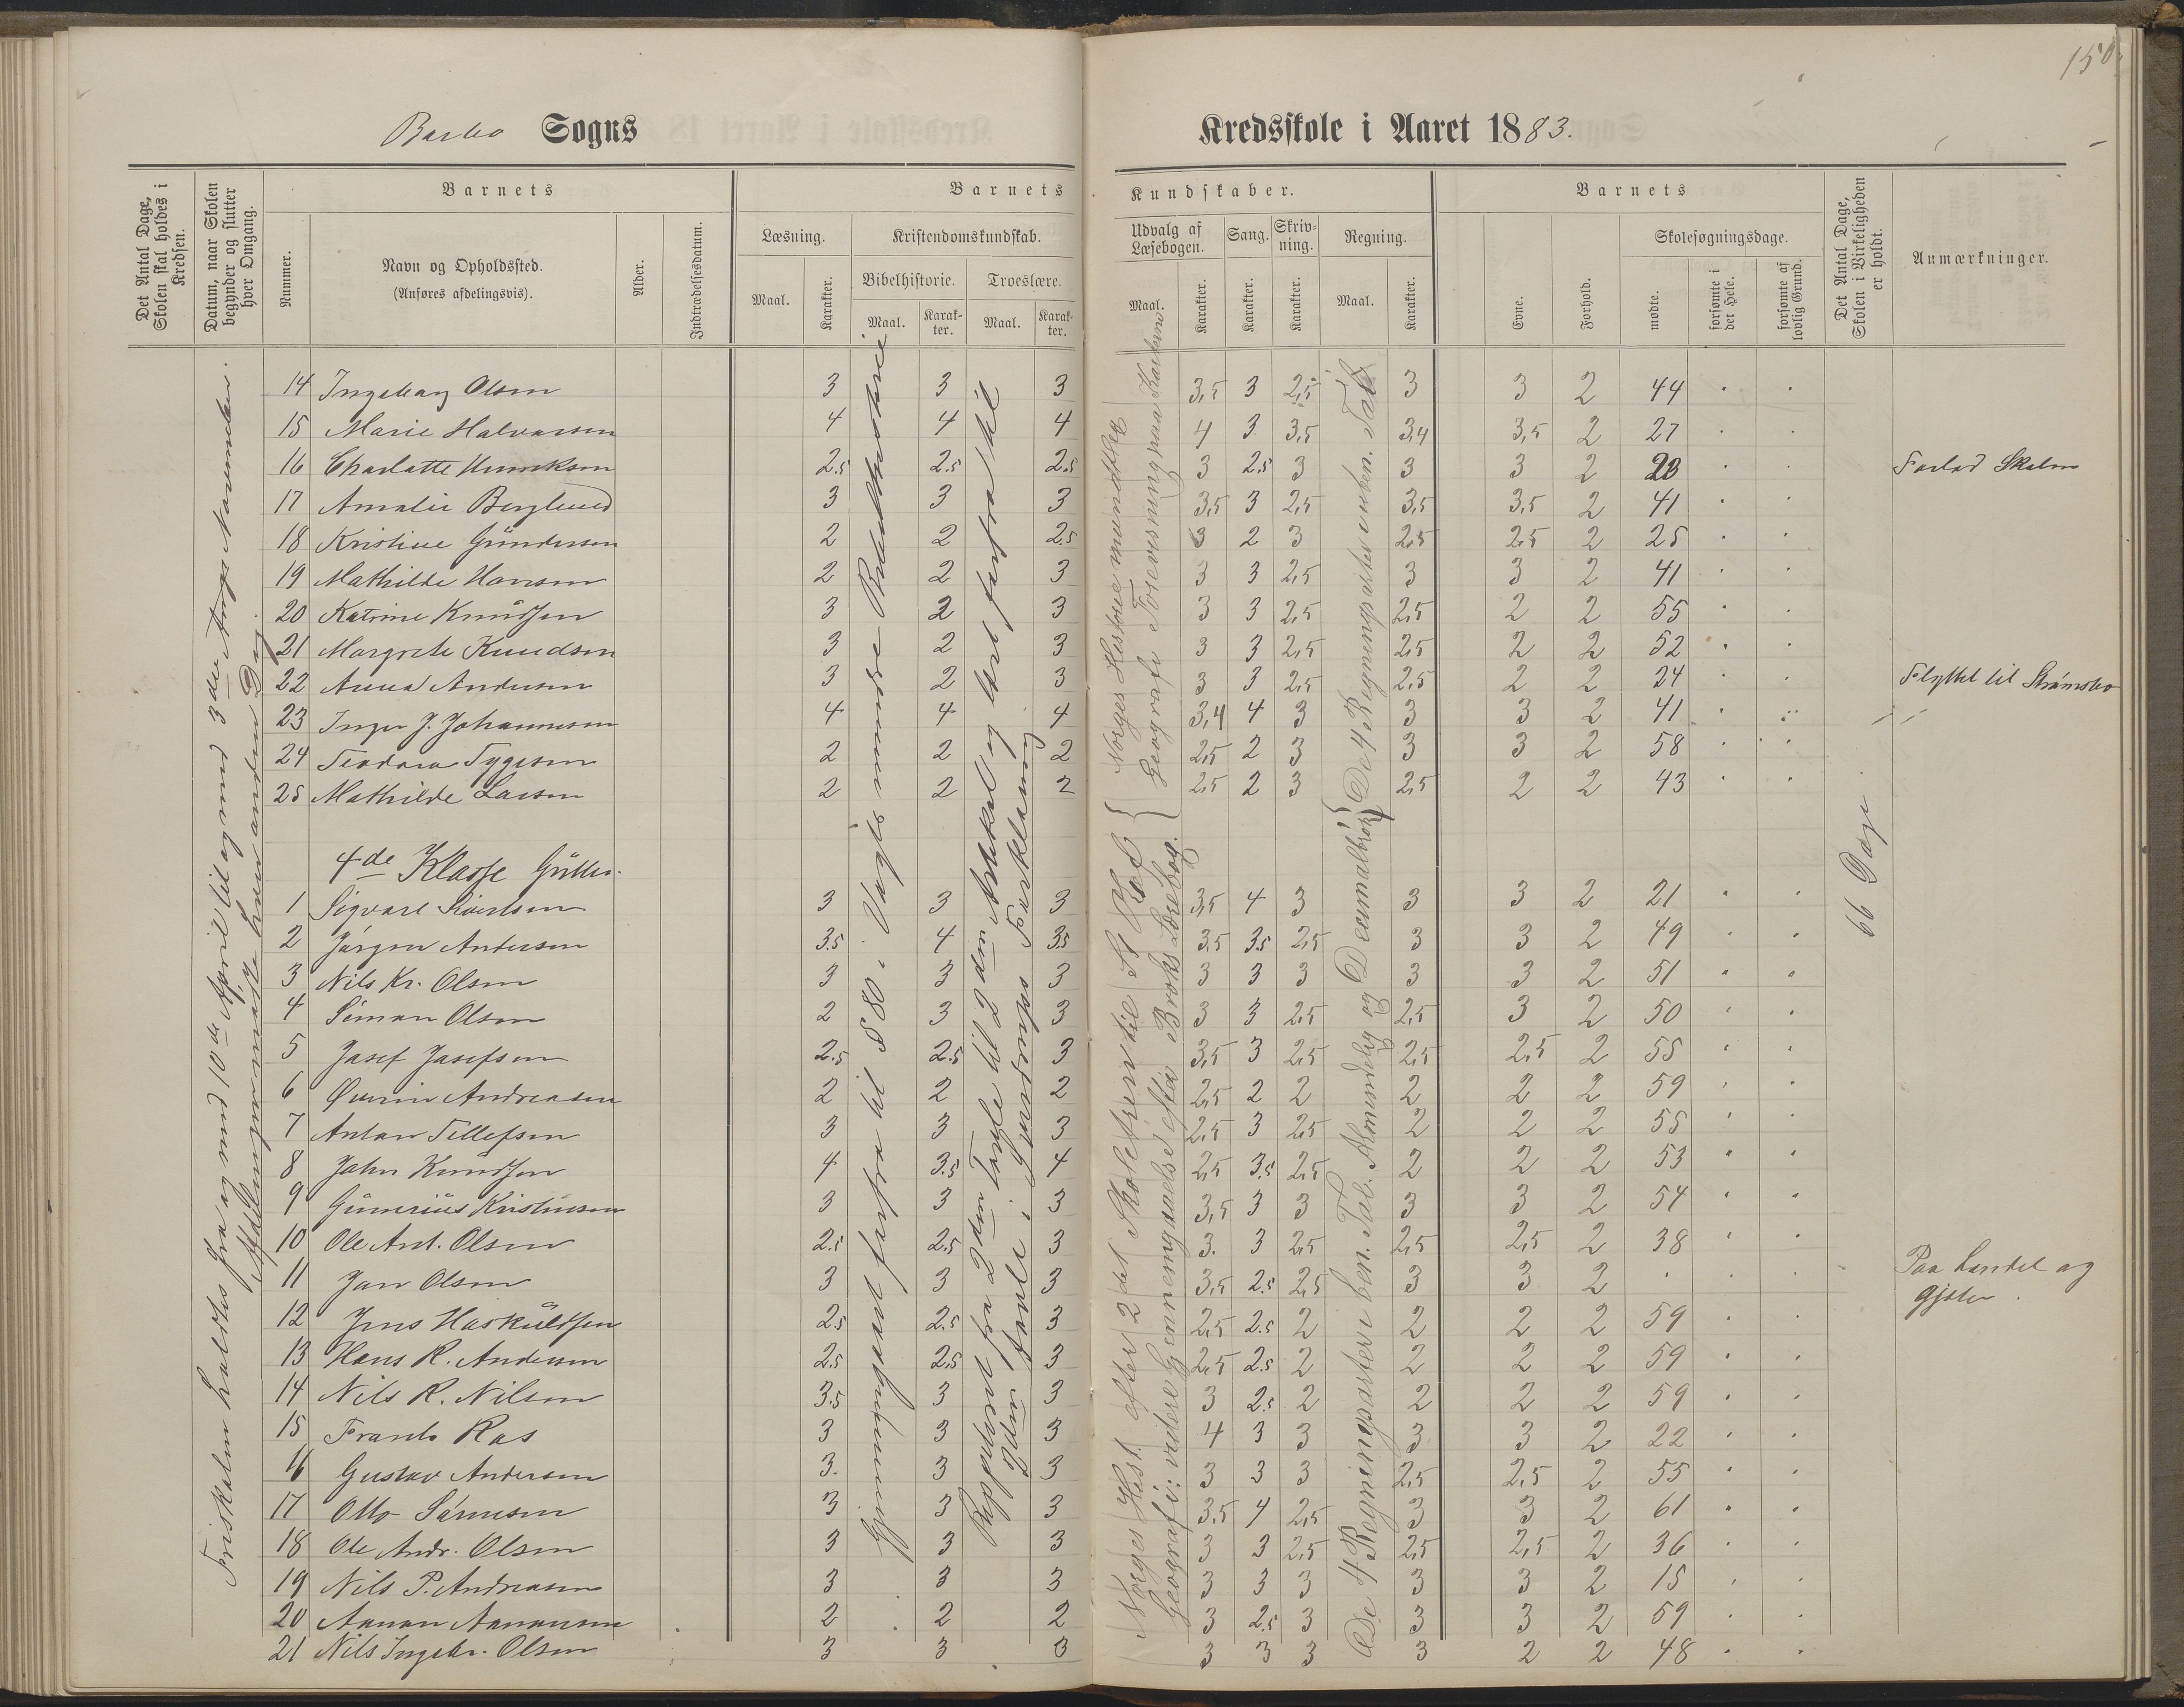 150
Barbo Sogns
Kredsskole i Aaret 1883.
Det Antal Dage, Skolen skal holdes i Kredsen.
Datum, naar Skolen begynder og slutter hver Omgang.
Nummer.
Barnets
Navn og Opholdssted.
(Anføres afdelingsvis).
Alder.
Indtrædelsesdatum.
Barnets
Læsning.
Maal.
Karakter.
Kristendomskundskab.
Bibelhistorie.
Maal.
Karakter.
Troeslære.
Maal.
Karakter.
Kundskaber.
Udvalg af Læsebogen.
Maal.
Karakter.
Sang.
Karakter.
Skrivning.
Karakter.
Regning.
Maal.
Karakter.
Barnets
Evne.
Forhold.
Skolesøgningsdage.
mødte.
forsømte i det Hele.
forsømte af lovlig Grund.
Det Antal Dage, Skolen i Virkeligheden er holdt.
Anmærkninger.
14 Ingeborg Olsen 3 3 3 3,5 3 2,5 3 3 2 44
15 Marie Halvorsen 4 4 4 4 3 3,5 3,4 3,5 2 27
16 Charlotte Henriksen 2.5 2.5 2.5 3 2.5 3 3 3 2 23 Forlod Skolen
17 Amalie Berglund 3 3 3 3,5 3 2,5 3,5 3,5 2 41
18 Kristine Gundersen 2 2 2.5 3 2 3 2,5 2,5 2 25
19 Mathilde Hansen 2 2 3 3 3 2,5 3 3 2 41
20 Katrine Knudsen 3 2 3 3 3 2,5 2,5 2 2 55
21 Margrete Knudsen 3 2 3 3 3 2,5 2,5 2 2 52
22 Anna Andersen 3 2 3 3 3 2,5 2,5 2 2 24 Flyttet til Strømsbo
23 Inger J. Johannesen 4 4 4 3,4 4 3 3 3 2 41
24 Teodora Tygesen 2 2 2 2,5 2 3 3 3 2 58
25 Mathilde Larsen 2 2 2 2,5 2 3 2,5 2 2 43
4de Klasse Gutter.
1 Sigvart Sivertsen 3 3 3 3,5 4 3 3 3 2 21
2 Jørgen Andersen 3.5 4 3.5 3,5 3.5 2,5 3 3 2 49
3 Nils Kr. Olsen 3 3 3 3 3 3 3 3 2 51
4 Simon Olsen 2 3 3 3 3 2,5 2,5 3 2 50
5 Josef Josefsen 2.5 2.5 3 3,5 3 2,5 2,5 2,5 2 55
6 Andreasen 2 2 2 2,5 2 2 2 2 2 59
7 Anton Tellefsen 3 3 3 2,5 3 2,5 2 2 2 55
8 John Knudsen 4 3.5 4 2,5 3.5 2,5 2 2 2 53
9 Gunerius Kristensen 3 3 3 3,5 3 3 3 3 2 54
10 Ole Ant. Olsen 2.5 2.5 3 3. 3 2,5 2,5 2,5 2 38
11 Jon Olsen 3 3 3 3,5 2.5 2,5 3 3 2 Paa Landet og
12 Jens Haskuldsen 2.5 2.5 3 2,5 2.5 2 2 2 2 59
13 Hans R. Andersen 2.5 2.5 3 2,5 2.5 2 2 2 2 59
14 Nils R. Nilsen 3.5 3 3 3 2.5 2 2 2 2 59
15 Frants Ras 3 3 3 4 3 3 3 3 2 22
16 Gustav Andersen 3. 3 3 3 3 3 2,5 2,5 2 55
17 Otto Sørensen 3 3 3 3,5 4 2,5 3 3 2 61
18 Ole Andr. Olsen 3 3 3 3 3 2,5 2,5 2,5 2 36
19 Nils P. Andreasen 3 3 3 3 3 3 3 3 2 15
20 Aanon Aanonsen 2 2 2 3 2.5 3 3 3 2 59
21 Nils Ingebr. Olsen 3 3 3 3 3 3 3 2 2 48
Friskolen holdtes fra og med 10de April til og med 3de
Afdelingen mødte hver anden Dag.
Gjennemgaaet forfra til § 80 i Vogts mindre Bibelhistorie
Reppeteret fra 2den Tavle til 2den Artikel og lært forfra til
3den Tavle i Sverdrups Forklaring
Norges Historie mundtlig
Geografi Foreviisning paa Kartene
Norges Hist. efter 2det Skoletrin til St Olaf
Geografi: videre Gennemgaaelse efter Broks Lærebog.
De 4 Regningsarter i uben. Tal
De 4 Regningsarter i ben. Tal. Almindelig og Decimalbrøk
66 Dage